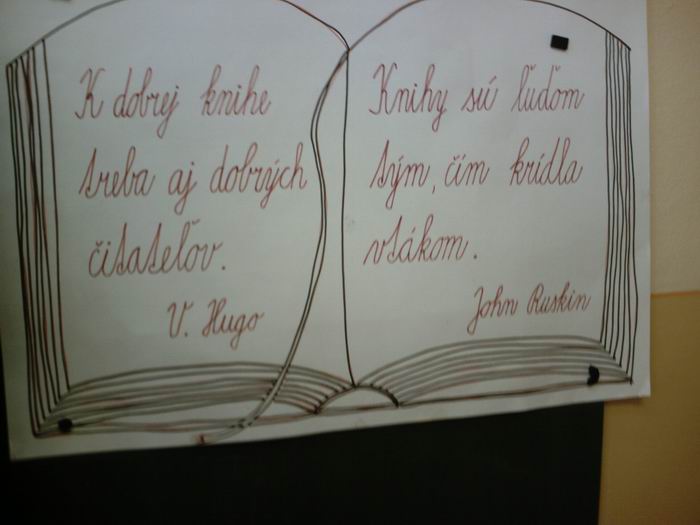 K dobrej knihe
treba aj dobrých
čitateľov.
V. Hugo
Knihy sú ľuďom
tým, čím krídla
vtákom.
John Ruskin